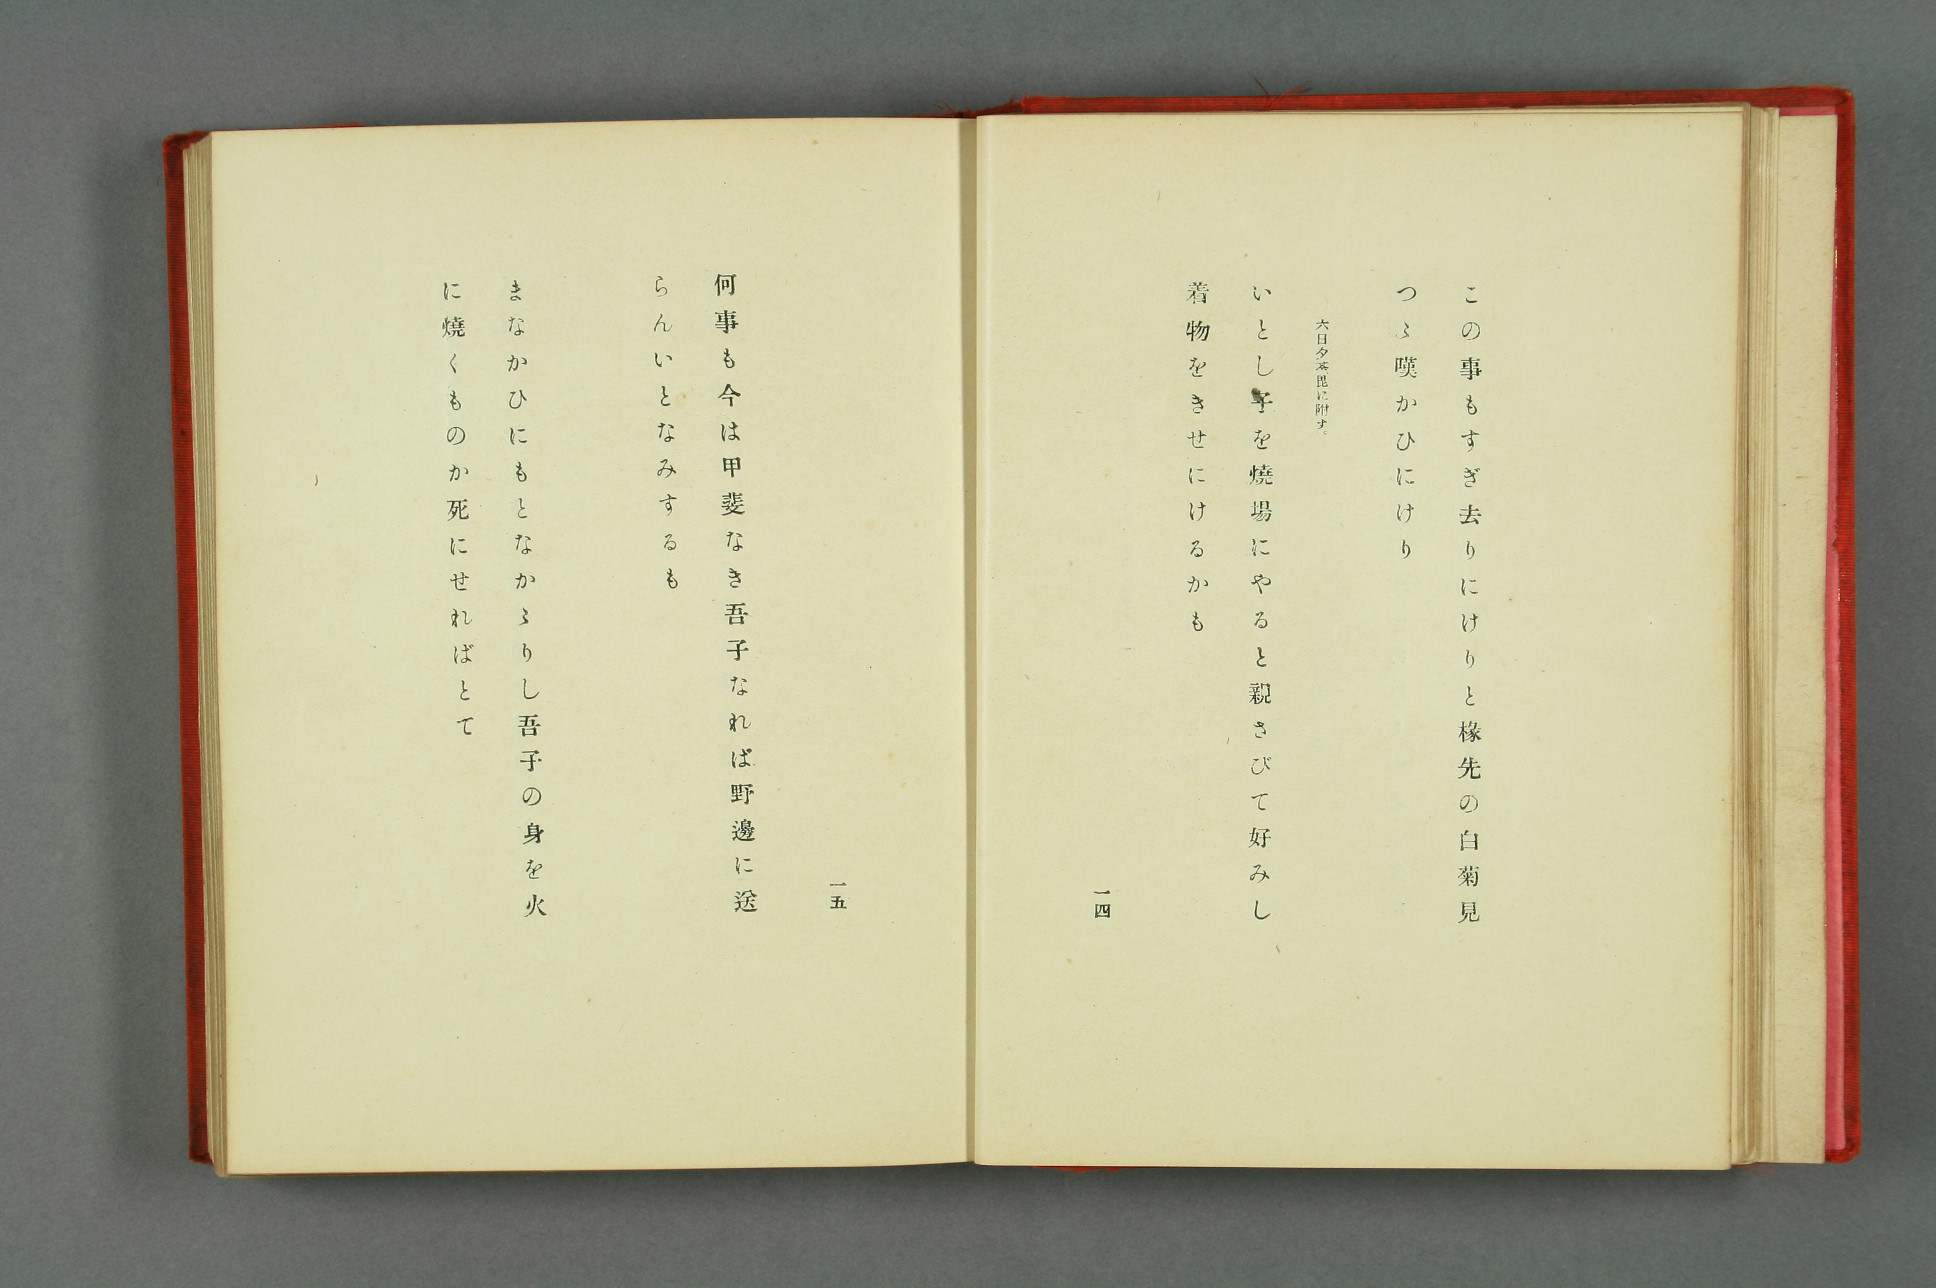 この事もすぎ去りにけりと椽先の白菊見
つゝ嘆かひにけり
六日夕荼毘に附す。
いとし子を燒場にやると親さびて好みし
着物をきせにけるかも
一四
一五
何事も今は甲斐なき吾子なれば野邊に送
らんいとなみするも
まなかひにもとなかゝりし吾子の身を火
に燒くものか死にせればとて